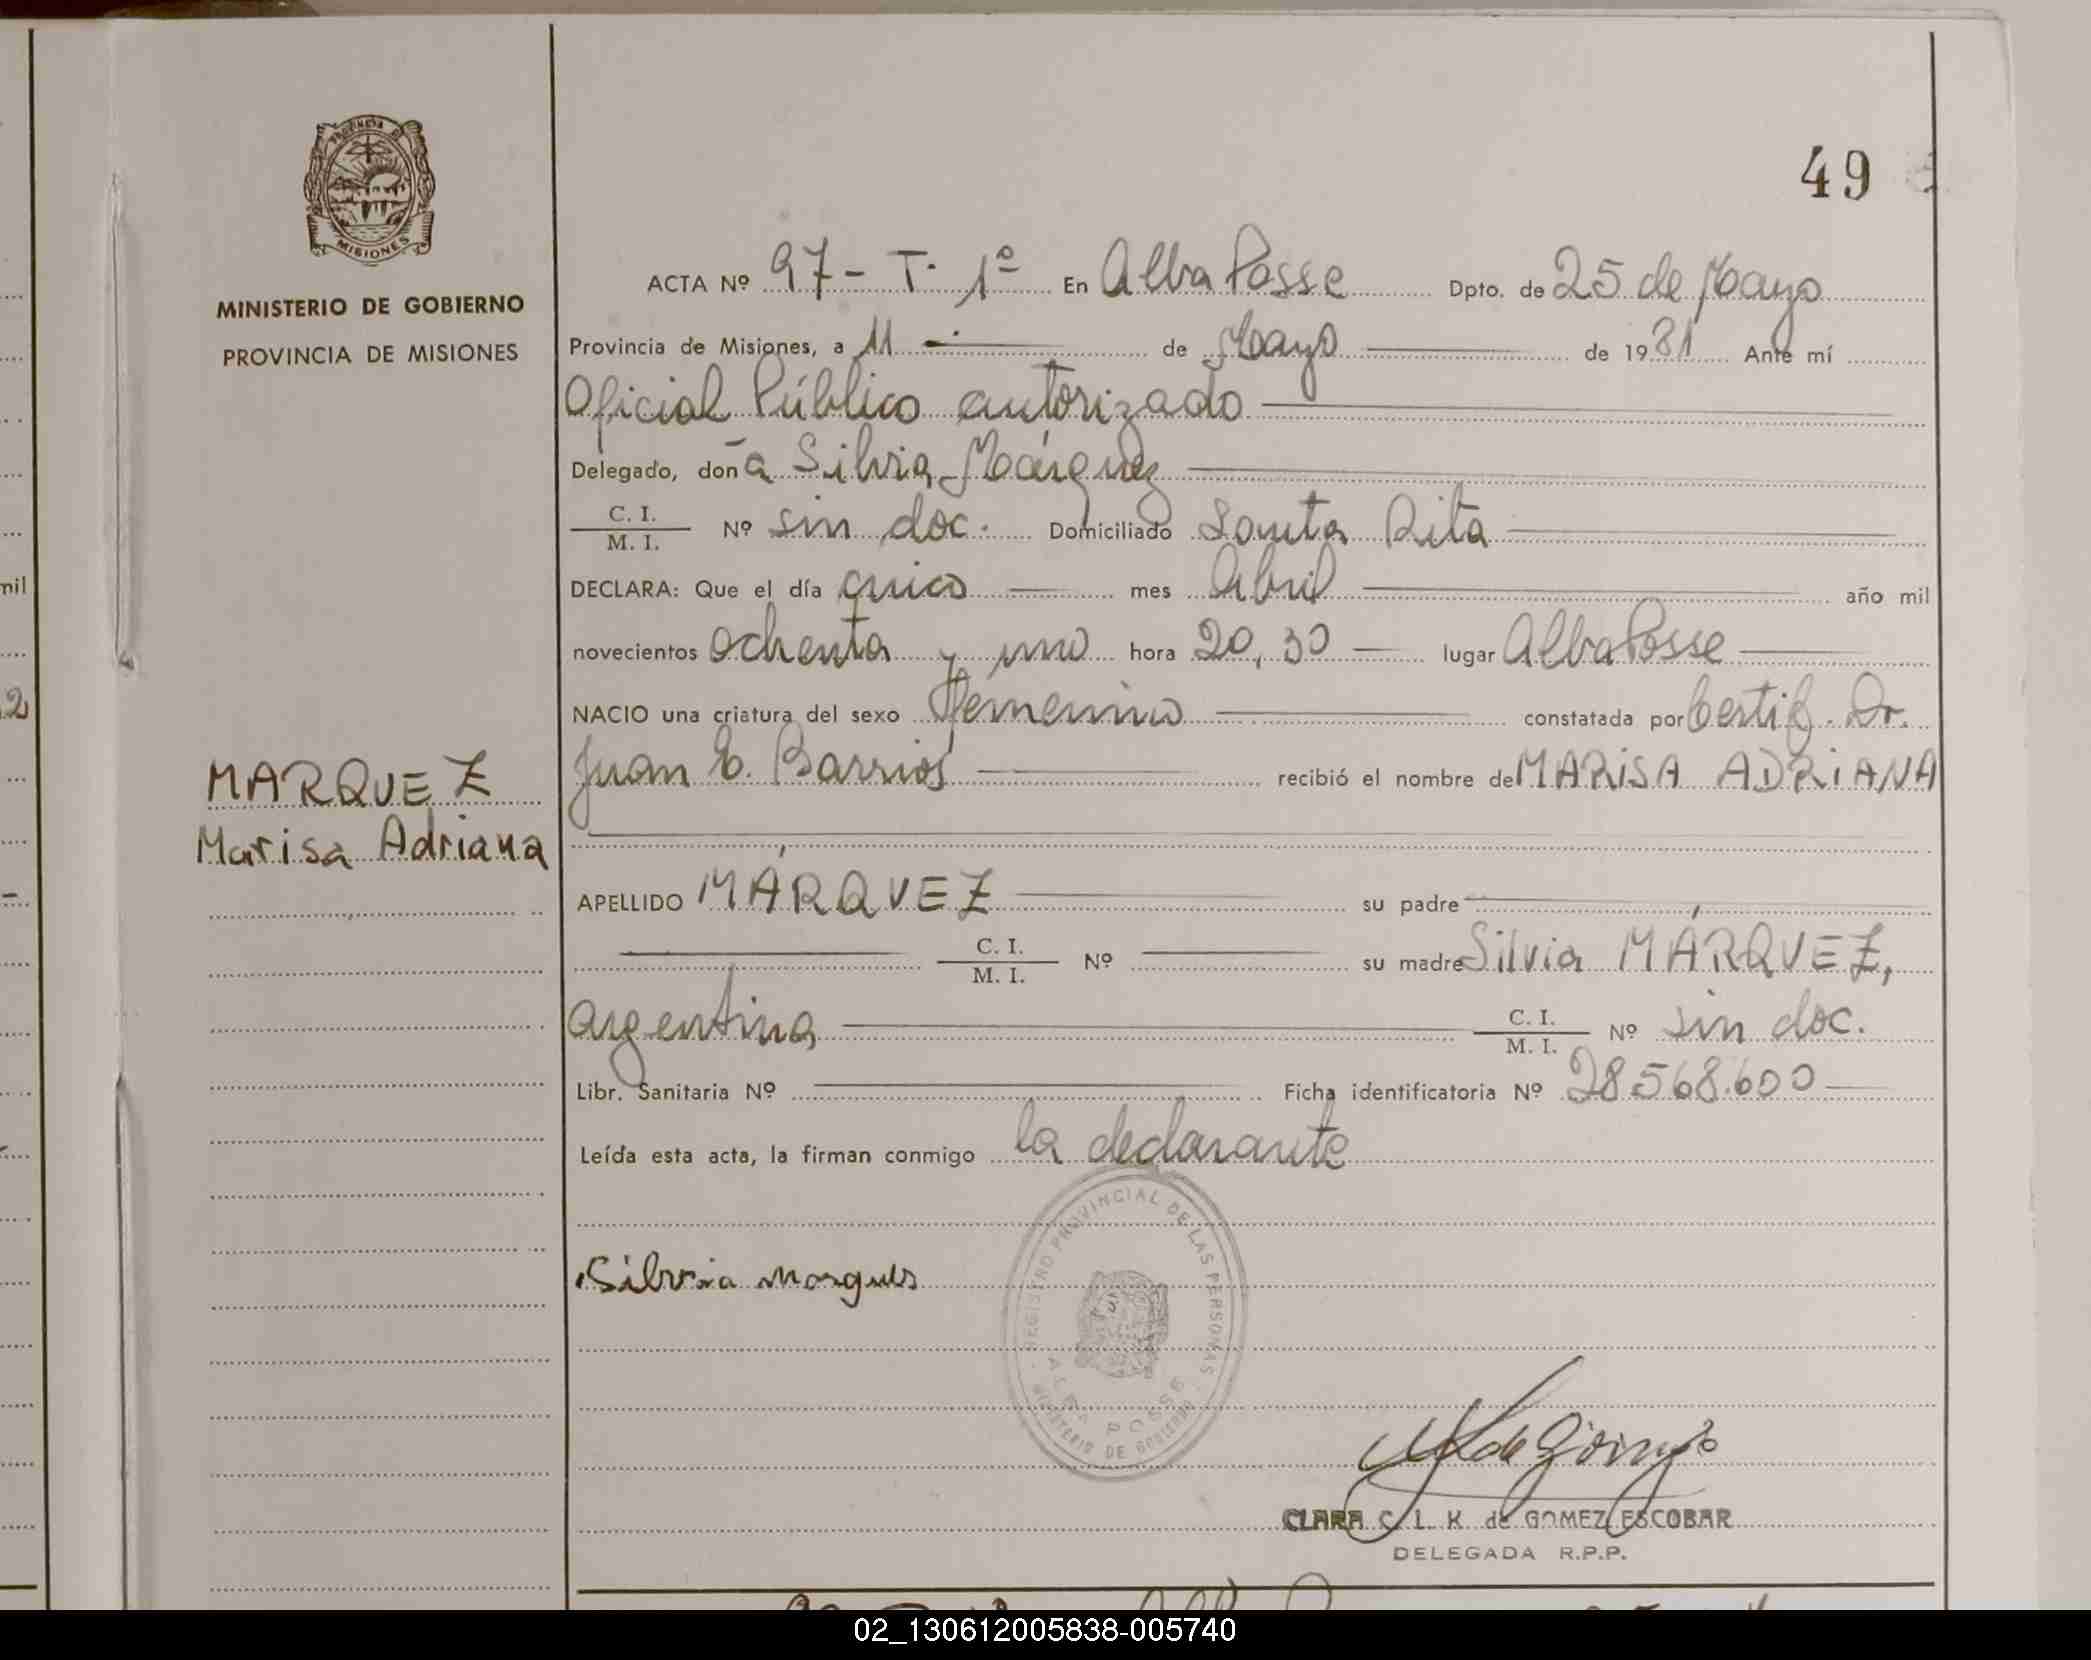 49
PROVINCIA DE
MISIONES
MINISTERIO DE GOBIERNO
PROVINCIA DE MISIONES
MARQUEZ
Marisa Adriana
ACTA Nº 97 - T. 1º En Alba Posse Dpto. de 25 de Mayo
Provincia de Misiones, a 11 de Mayo de 1981 Ante mí
Oficial Público autorizado
Delegado, doña Silvia Márquez
C. I.
M. I. Nº sin doc. Domiciliado Santa Rita
DECLARA: Que el día cinco mes Abril año mil
novecientos ochenta y uno hora 20,30 lugar Alba Posse
NACIO una criatura del sexo femenino constatada por Certif. Dr.
Juan C. Barrios recibió el nombre de MARISA ADRIANA
APELLIDO MÁRQUEZ su padre
C. I.
M. I. Nº su madre Silvia MÁRQUEZ,
argentina C. I.
M. I. Nº sin doc.
Libr. Sanitaria Nº Ficha identificatoria Nº 28568.600
Leída esta acta, la firman conmigo la declarante
REGISTRO PROVINCIAL DE LAS PERSONAS
ALBA POSSE
MINISTERIO DE GOBIERNO
Silvia
CLARA C. L. K. de GOMEZ ESCOBAR
DELEGADA R.P.P.
mil
2
02_130612005838-005740